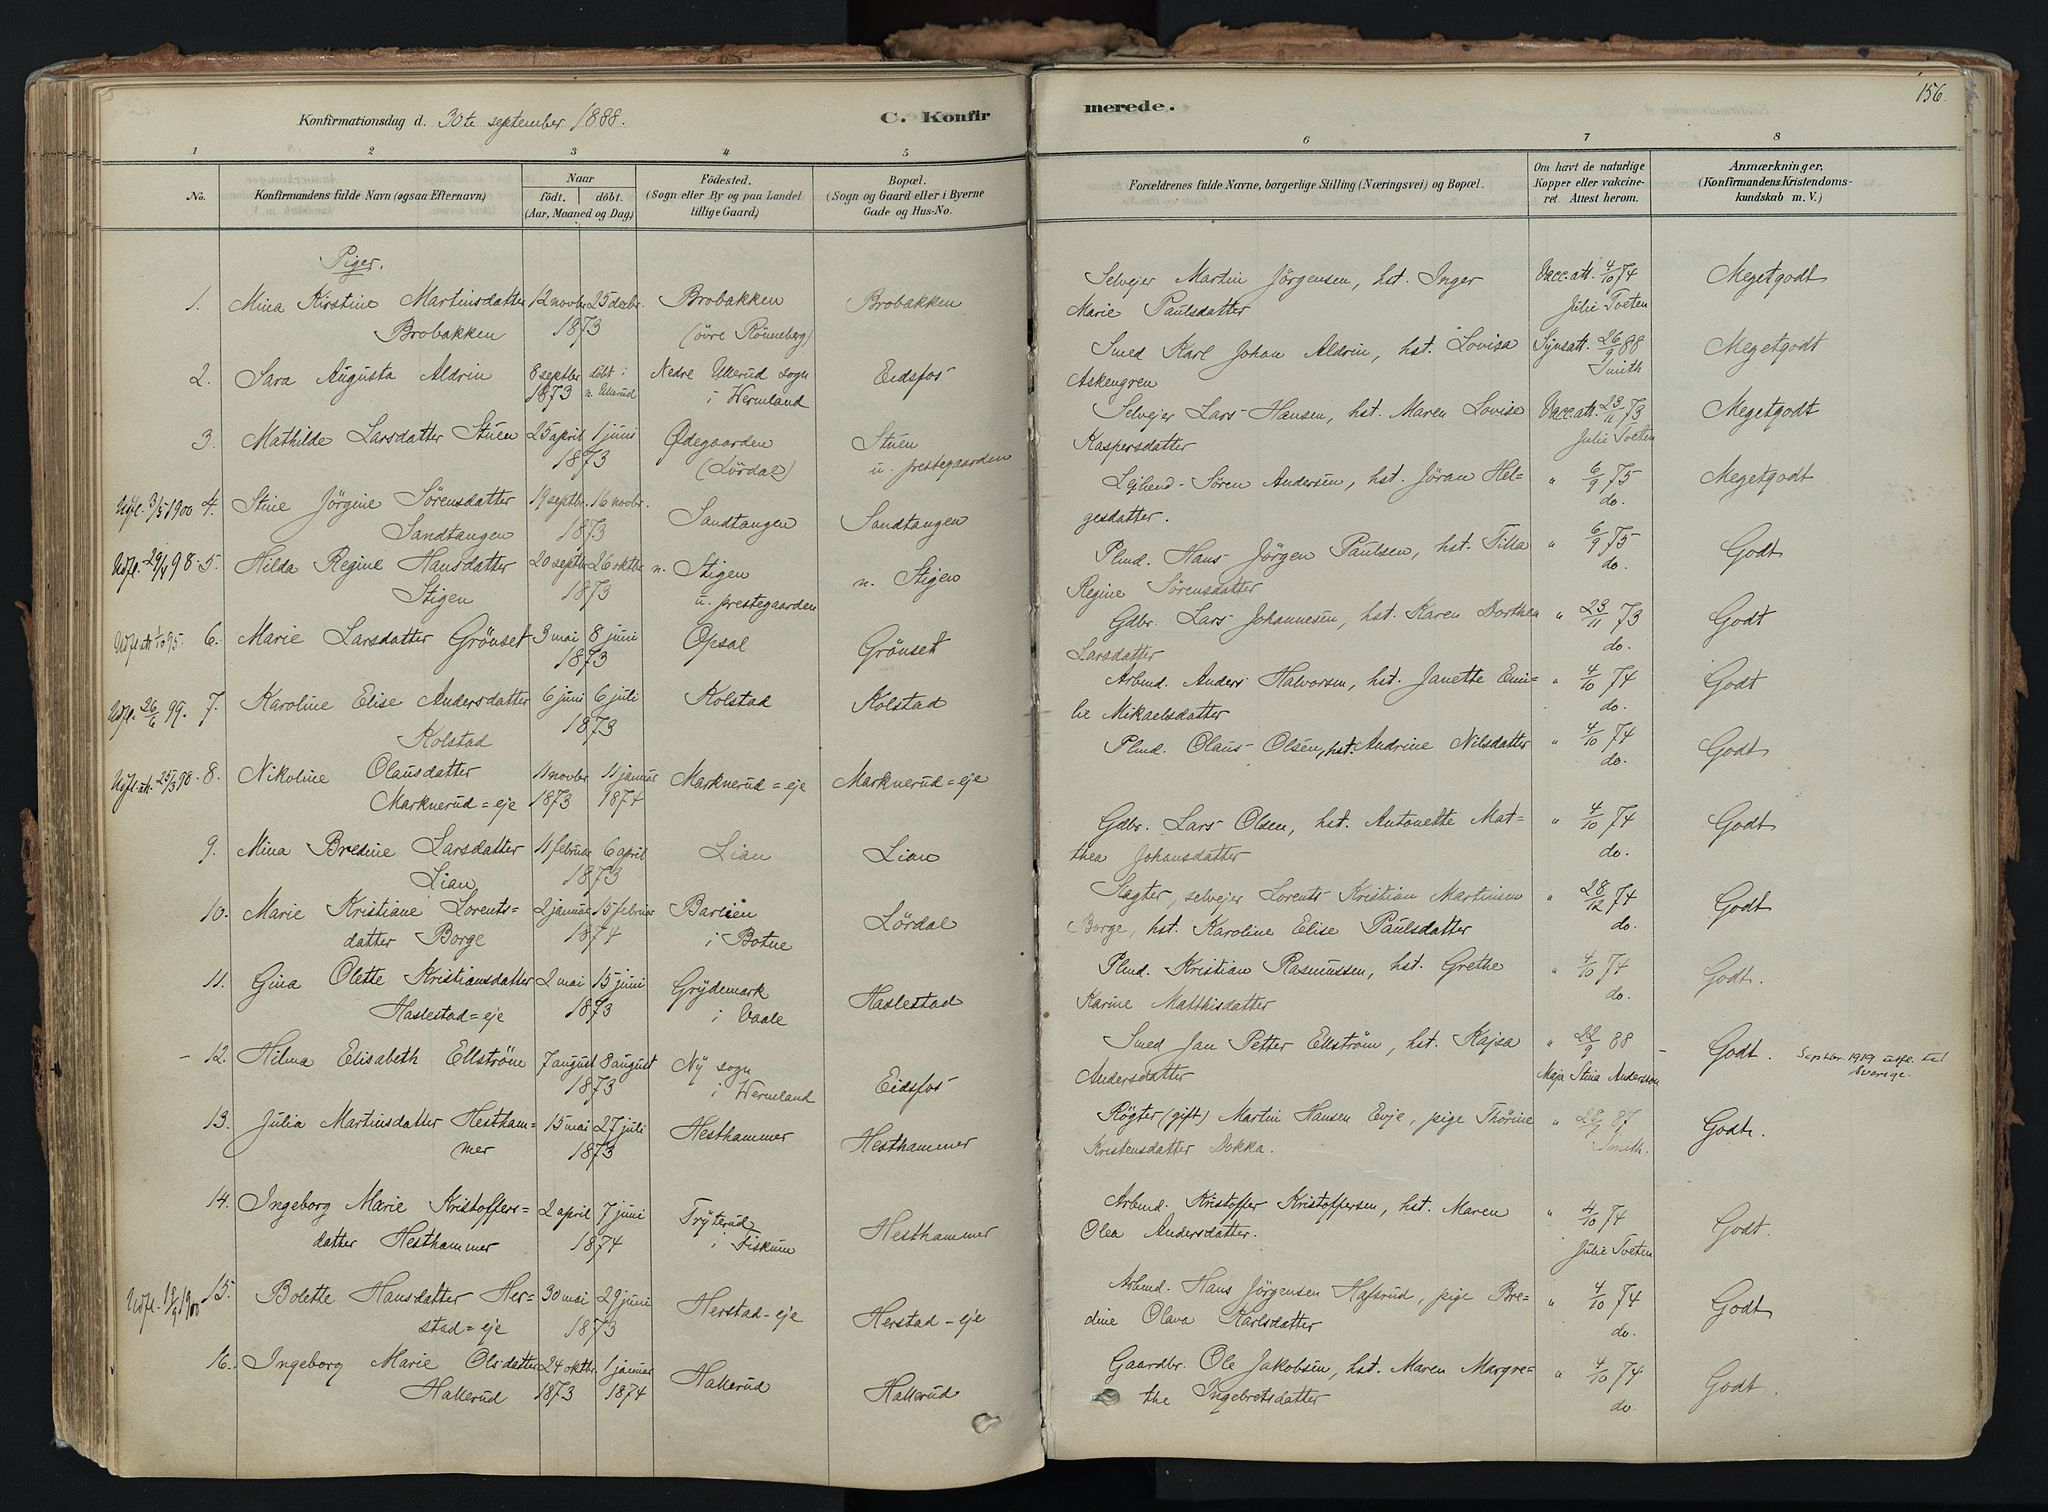 156.
Konfirmationsdag d. 30te september 1888.
C. Konfirmerede.
1 2 3 4 5 6 7 8
No.
Konfirmandens fulde Navn (ogsaa Efternavn)
Naar
födt. döbt.
(Aar, Maaned og Dag)
Födested.
(Sogn eller By og paa Landet
tillige Gaard)
Bopæl.
(Sogn og Gaard eller i Byerne
Gade og Hus-No.
Forældrenes fulde Navne, borgerlige Stilling (Næringsvei) og Bopæl.
Om havt de naturlige
Kopper eller vakcine-
ret. Attest herom.
Anmærkninger,
(Konfirmandens Kristendoms-
kundskab m. V.)
Piger.
1. Mina Kirstine Martinsdatter 12 novbr. 25 decbr. Brobakken Brobakken Selvejer Martin Jörgensen, hst. Inger Vacc.att. 4/10 74 Megetgodt
Brobakken 1873 (övre Rönneberg) Marie Paulsdatter Julie Tveten
2. Sara Augusta Aldrin 8 septbr döbt i Nedre Ullerud sogn Eidsfos Smed Karl Johan Aldrin, hst. Lovisa Synsatt. 26/9 88 Megetgodt
1873 n. Ullerud i Wermland Askengren Smith
3. Mathilde Larsdatter Stuen 25 april 1 juni Ødegaarden Stuen Selvejer Lars Hansen, hst. Maren Lovise Vacc.att. 23/11 73 Megetgodt
1873 (Lördal) u. prestegaarden Kaspersdatter Julie Tveten
Udfl. 3/5 1900 4. Stine Jörgine Sörensdatter 19 septbr. 16 novbr. Sandtangen Sandtangen Lejlend. Sören Andersen, hst. Jöran Hel= " 6/9 75 Megetgodt
Sandtangen 1873 gesdatter. do.
Udfl. 29/4 98 5. Hilda Regine Hansdatter 20 septbr 26 oktbr n. Stigen n. Stigen Plmd. Hans Jörgen Paulsen, hst. Tilla " 6/9 75 Godt
Stigen 1873 u. prestegaarden Regine Sörensdatter do.
Udfl.att 1/10 95. 6. Marie Larsdatter Grönset 3 mai 8 juni Opsal Grönset Gdbr. Lars Johannesen, hst. Karen Dorthea " 23/11 73 Godt
1873 Larsdatter do.
Udfl. 26/6 99. 7. Karoline Elise Andersdatter 6 juni 6 juli Kolstad Kolstad Arbmd. Anders Halvorsen, hst. Janette Emi= " 4/10 74 Godt
Kolstad 1873 lie Mikaelsdatter do.
Udfl.att. 25/3 98. 8. Nikoline Olausdatter 11 novbr 11 januar Marknerud=eje Marknerud=eje Plmd. Olaus Olsen, hst. Andrine Nilsdatter " 4/10 74 Godt
Marknerud=eje 1873 1874 do.
9. Mina Bredine Larsdatter 11 februar 6 april Lian Lian Gdbr. Lars Olsen, hst. Antonette Mat= " 4/10 74 Godt
Lian 1873 thea Johansdatter do.
10. Marie Kristiane Lorents= 2 januar 15 februar Lördal Slagter, selvejer Lorents Kristian Martinsen " 28/12 74 Godt
datter Borge 1874 i Botne Borge, hst. Karoline Elise Paulsdatter do.
11. Gina Olette Kristiansdatter 2 mai 15 juni Grydemark Haslestad Plmd. Kristian Rasmussen, hst. Grethe " 4/10 74 Godt.
Haslestad=eje 1873 i Vaale Karine Matthisdatter do.
12. Hilma Elisabeth Ellström 7 august 8 august Ny sogn Eidsfos Smed Jan Petter Ellström, hst. Kajsa " 22/9 88 Godt. Septbr. 1919 utfl. til
1873 i Wermland Andersdatter Maja Stina Andersson Sverige.
13. Julia Martinsdatter Hestham= 15 mai 27 juli Hesthammer Hesthammer Rögter (gift) Martin Hansen Evje, pige Thorine " 28/9 87 Godt.
mer 1873 Kristensdatter Dokka. Smith.
14. Ingeborg Marie Kristoffers= 2 april 7 juni Tryterud Hesthammer Arbmd. Kristoffer Kristoffersen, hst. Maren " 4/10 74 Godt.
datter Hesthammer 1874 i Fiskum Olea Andersdatter. Julie Tveten
Udfl. 1900 15. Bolette Hansdatter Her= 30 mai 29 juni Herstad-eje Herstad-eje Arbmd. Hans Jörgensen Hafsrud, pige Bre= " 4/10 74 Godt
stad=eje 1873 dine Olava Karlsdatter do.
16. Ingeborg Marie Olsdatter 24 oktbr. 1 januar Hallerud Hallerud Gaardbr. Ole Jakobsen, hst. Maren Margre= " 4/10 74 Godt.
Hallerud 1873 1874 the Ingebretsdatter do.